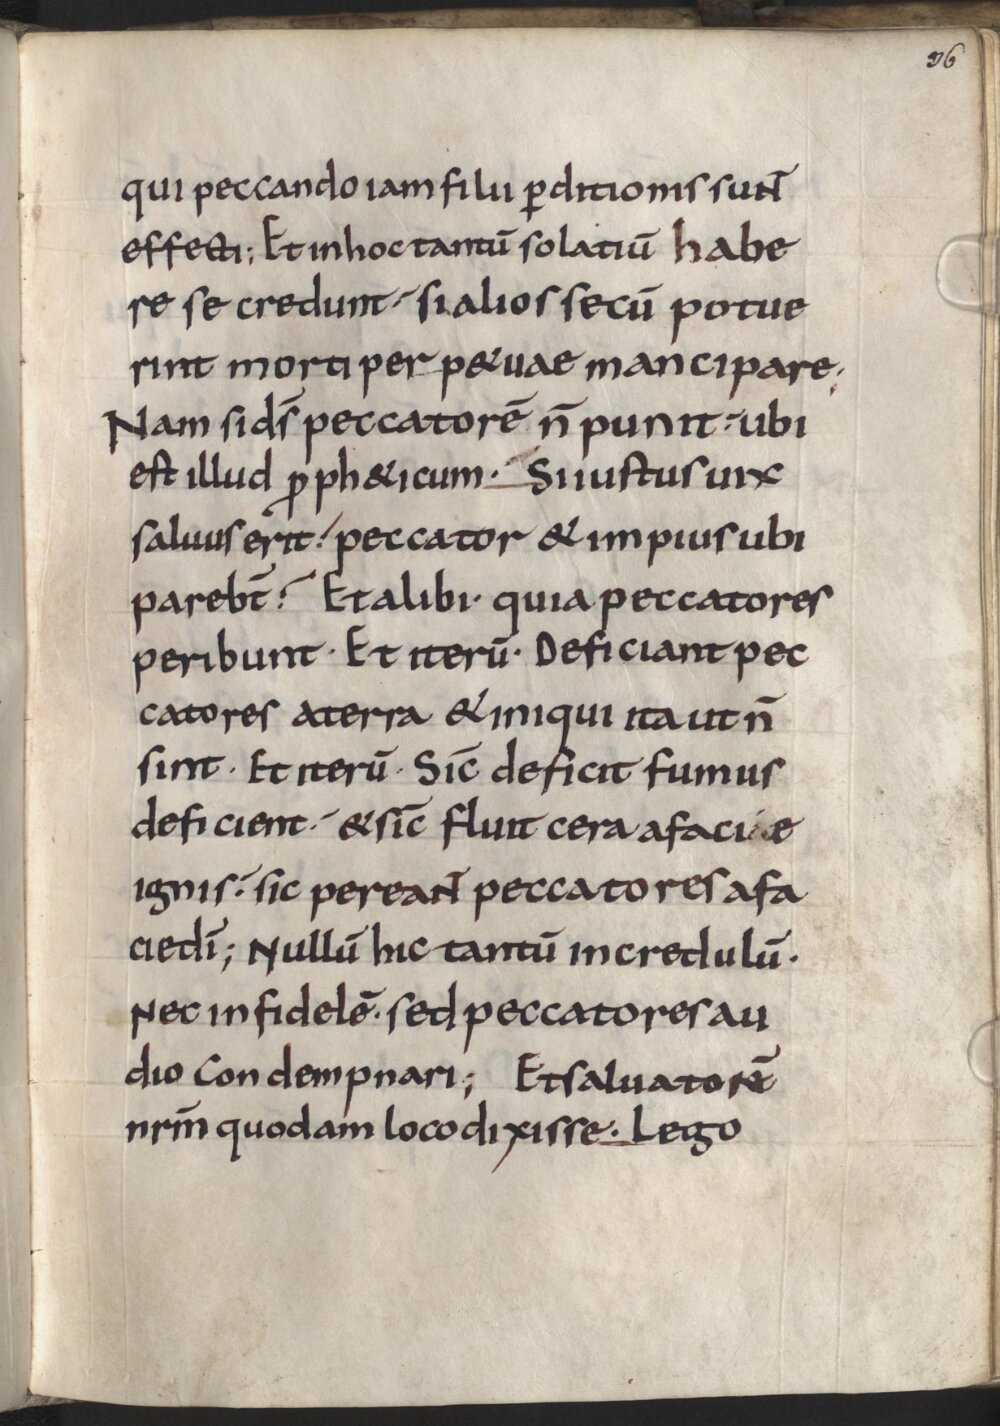 36
qui peccando iam filii ꝑditionis sunt̄
effecti; Et in hoc tantū solatiū habe
re se credunt. si alios secū potue
rint morti per p&uae mancipare;
Nam si ds̄ peccatorē n̄ punit. ubi
est illud ꝓph&icum. Si iustus uix
saluus erit? peccator & impius ubi
parebt̄? Et alibi. quia peccatores
peribunt. Et iterū. Deficiant pec
catores aterra & iniqui ita ut n̄
sint. Et iterū. Sic̄ deficit fumus
deficient. & sic̄ fluit cera afaciae
ignis. sic pereant̄ peccatores afa
cie dī; Nullū hic tantū incredulū.
Nec infidelē. sed peccatores au
dio condempnari; Et saluatorē
nrm̄ quodam loco dixisse. Lego